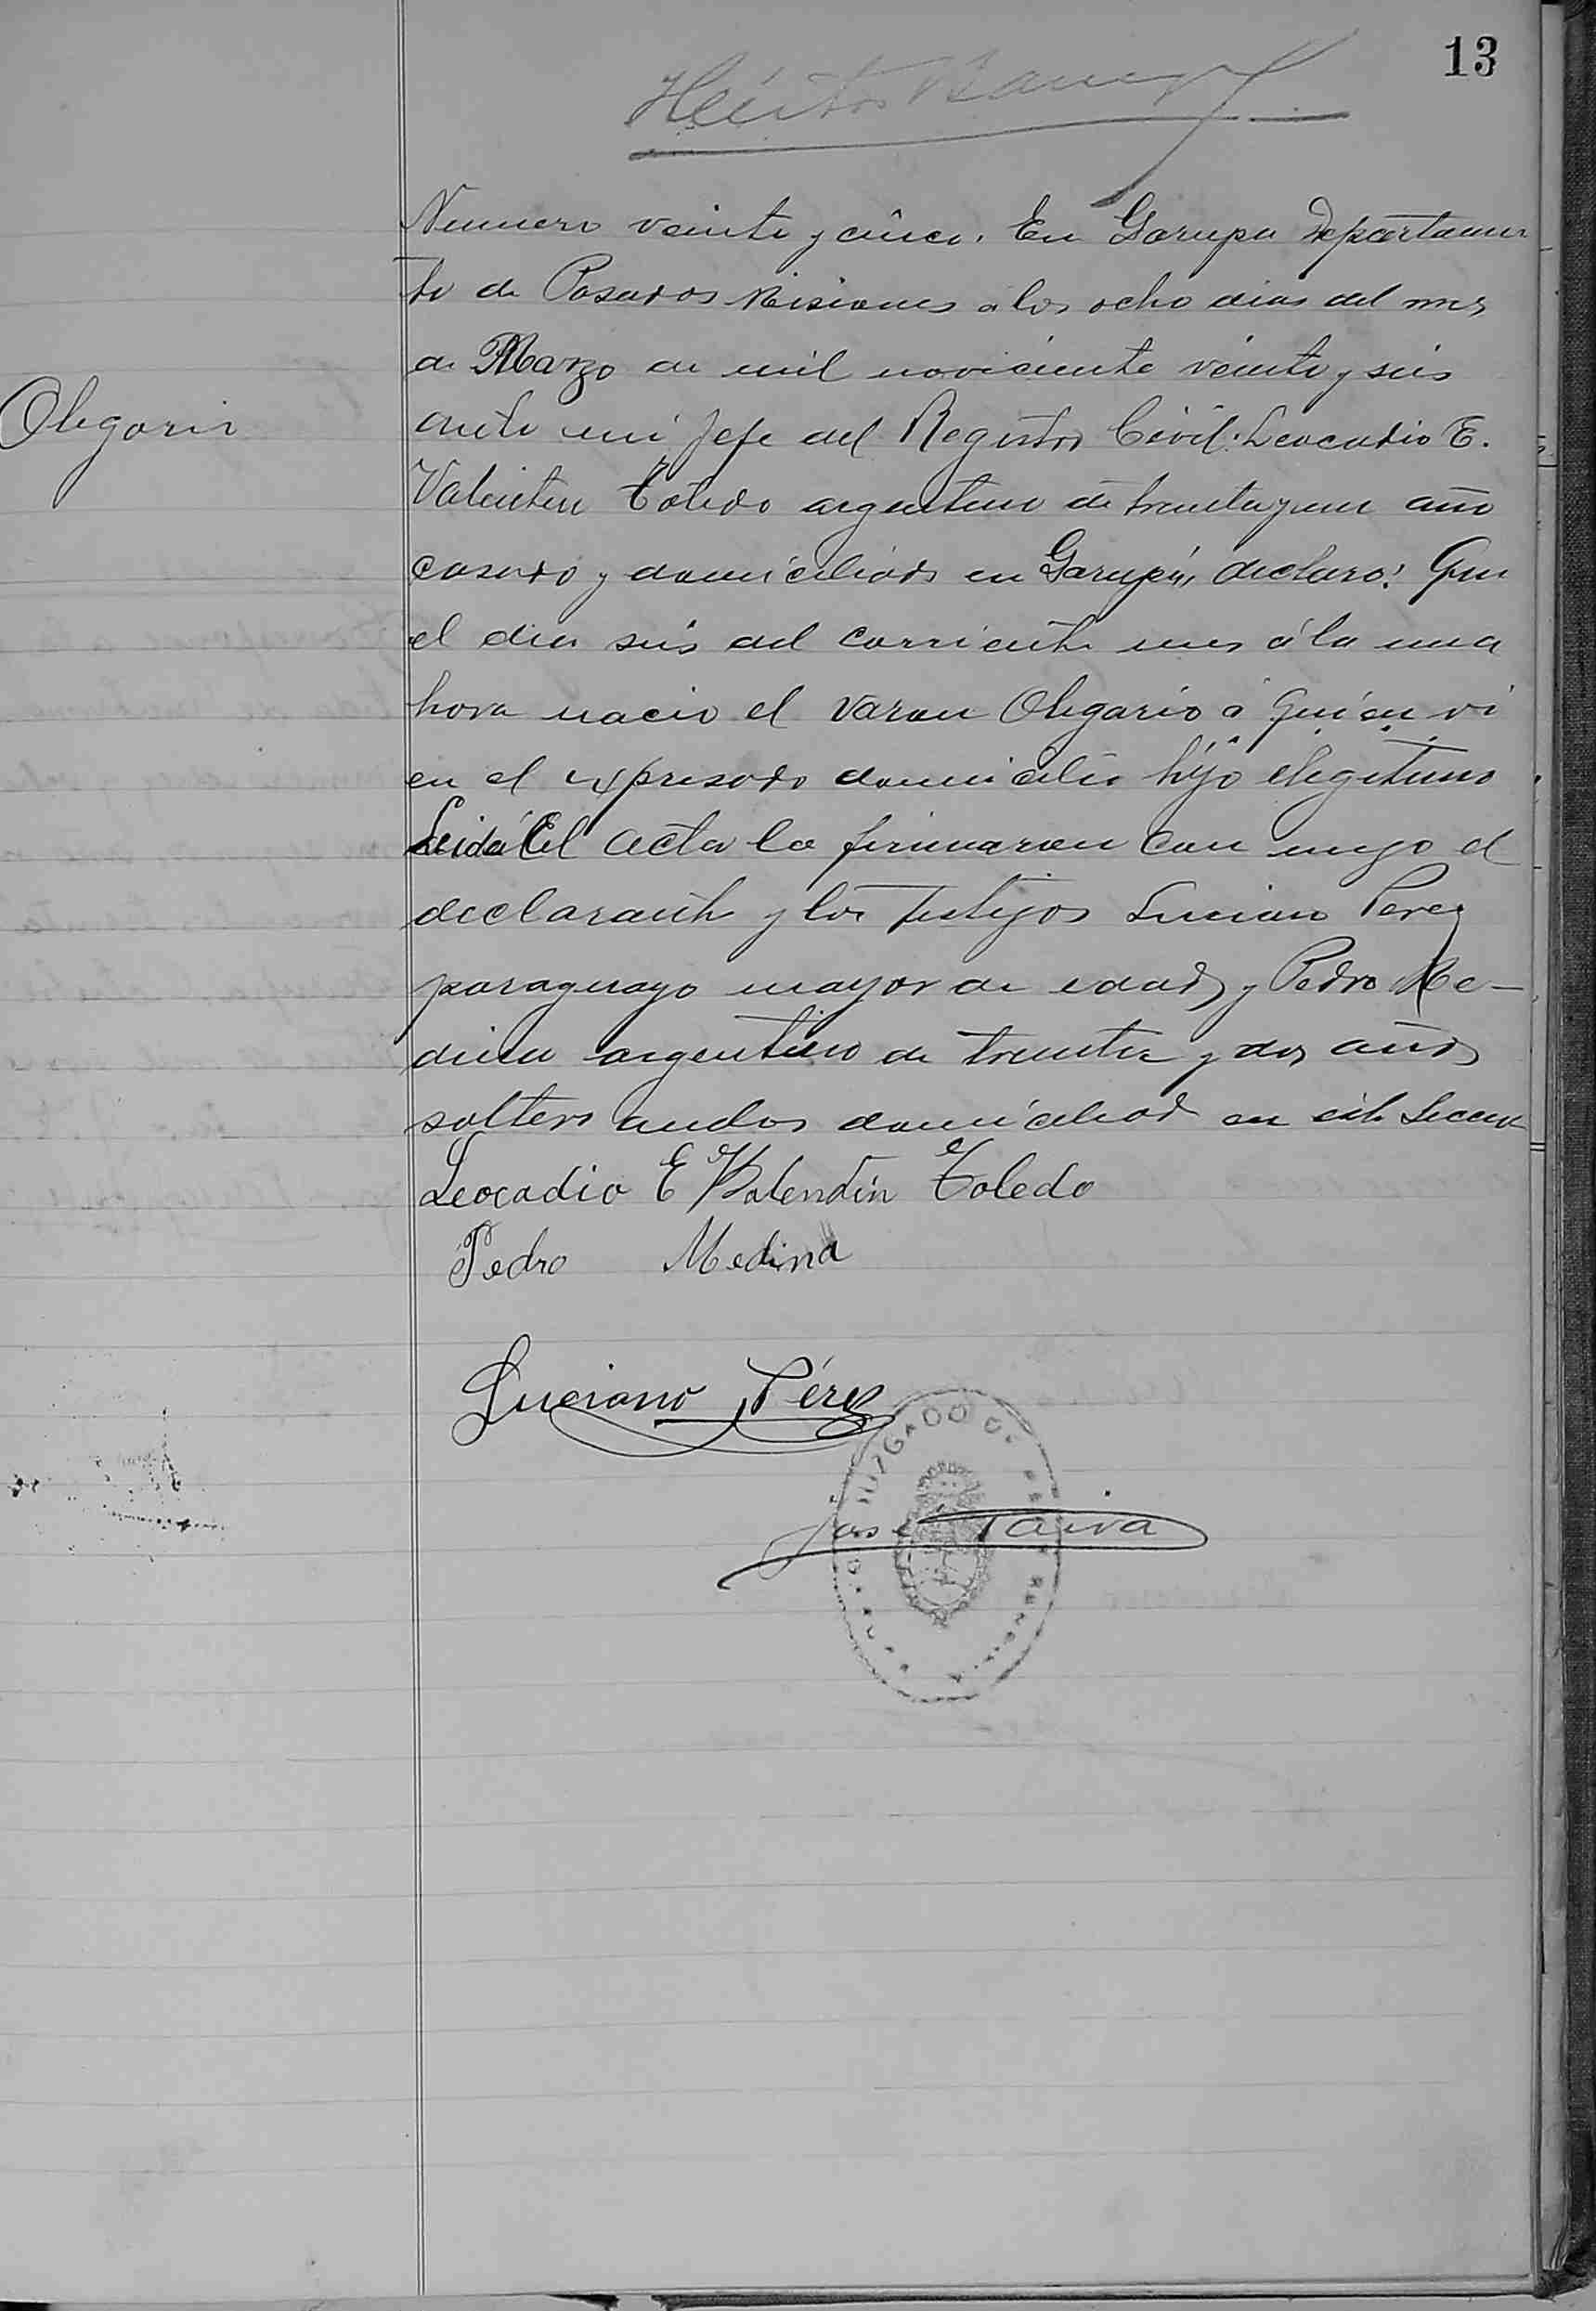 13
Héctor
Numero veinte y cinco. En Garupa Departamen
to de Posadas Misiones a los ocho dias del mes
de Marzo de mil noviciento veinte y seis
Olegario
ante mi Jefe del Registro Civil. Leocadio E.
Valentin Toledo argentino de treinta y un año
casado y domiciliado en Garupá, declaro: Que
el dia seis del corriente mes á la una
hora nacio el varon Olegario á quien vi
en el expresado domicilio hijo elegitimo
Leida el acta la firmaron con migo el
declarante y los testigos Luciano Perez
paraguayo mayor de edad y Pedro Me-
dina argentino de treinta y dos años
soltero ambos domiciliad en esta Secc
Leocadio E Valentín Toledo
Pedro Medina
Luciano Pérez
JUZGADO DE PAZ
José Paiva